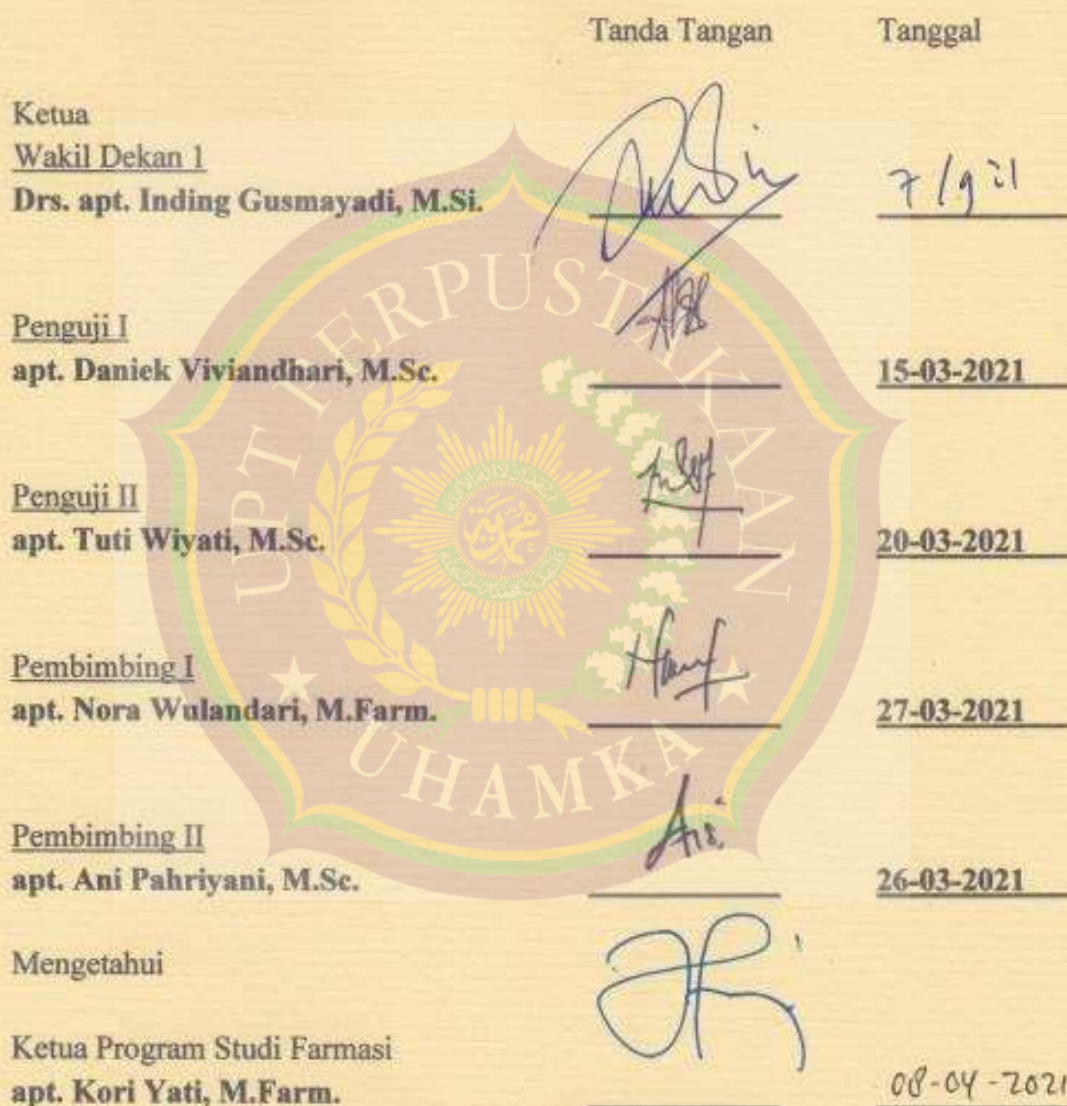 Tanda Tangan Tanggal
Ketua
Wakil Dekan 1
Drs. apt. Inding Gusmayadi, M.Si.
Penguji I
apt. Daniek Viviandhari, M.Sc. 15-03-2021
Penguji II
apt. Tuti Wiyati, M.Sc. 20-03-2021
Pembimbing I
apt. Nora Wulandari, M.Farm. 27-03-2021
Pembimbing II
apt. Ani Pahriyani, M.Sc. 26-03-2021
Mengetahui
Ketua Program Studi Farmasi
apt. Kori Yati, M.Farm. 08-04-2021
UPT PERPUSTAKAAN
UHAMKA